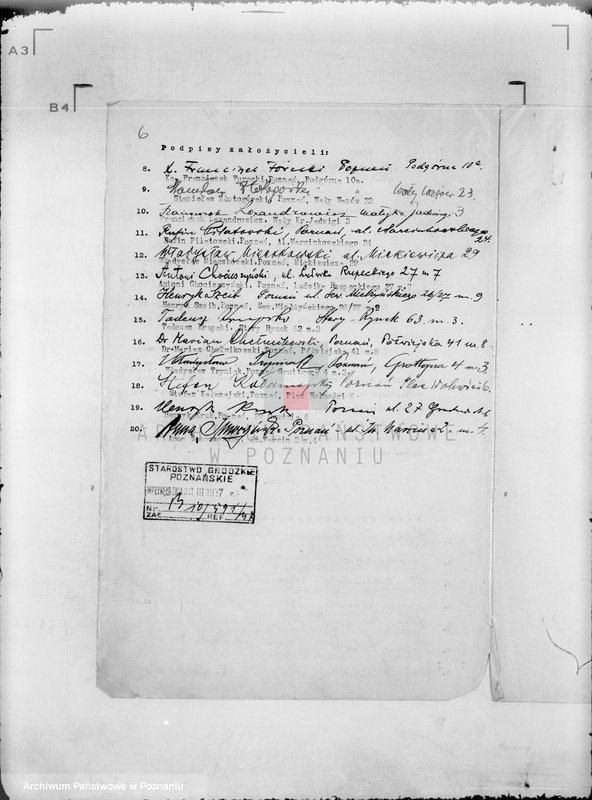 A3
B4
6
Podpisy założycieli:
8. X. Franciszek Forecki Poznań Podgórna 10a.
Ks. Franciszek Forecki, Poznań, Podgórna 10a.
9. Wały Wazów 23
Stanisław Złotogórski Poznań, Wały Wazów 23
10. Franciszek Lexandrowicz Jadwigi 3
Franciszek Lexandrowicz. Wały Kr. Jadwigi 3
11. Rufin Piłatowski, Poznań, al. Marcinkowskiego 24.
Rufin Piłatowski, Poznań, Al. Marcinkowskiego 24
12. Władysław Mieczkowski ul. Mickiewicza 29
Władysław Mieczkowski, Poznań, Mickiewicza 29
13. Antoni Chociszyński, ul. Ludwika Rzepeckiego 27 m 7
Antoni Chociszyński, Poznań, Ludwika Rzepeckiego 27 m 7
14. Henryk Szeib Poznań ul Sew. Mielżyńskiego 26/27 m. 9
Henryk Szeib, Poznań, Sew. Mielżyńskiego 26/27 m 9
15. Tadeusz Krupski Stary-Rynek 63 m. 3.
Tadeusz Krupski, Stary Rynek 63 m. 3
16. Dr Marian Chełmikowski, Poznań, Półwiejska 41 m 8-
Dr. Marian Chełmikowski, Poznań, Półwiejska 41 m 8
17. Władysław Poznań, Grottgera 4 m 3
Władysław Poznań, Grottgera 4 m. 3.
18. Stefan Poznań Plac Wolności 6.
Stefan Poznań, Plac Wolności 6
19. Henryk Poznań ul. 27 Grudnia
20. Anna Poznań - ul. Św. Marcina m. 4.
ARCHIWUM PAŃSTWOWE
W POZNANIU
STAROSTWO GRODZKIE
POZNAŃSKIE
WPŁYNĘŁO DNIA III 1937
NR. B 10/591/37
ZAŁ. REF.
Archiwum Państwowe w Poznaniu